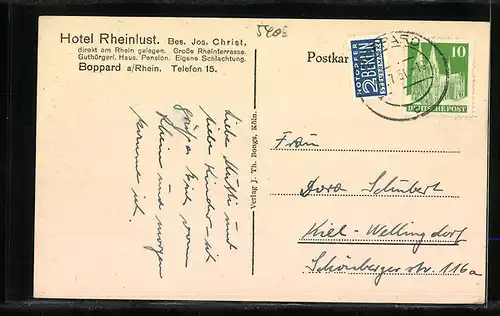 5406
Hotel Rheinlust. Bes. Jos. Christ,
direkt am Rhein gelegen. Große Rheinterrasse.
Gutbürgerl. Haus. Pension. Eigene Schlachtung.
Boppard a/Rhein. Telefon 15.
Liebe Mutti und
liebe Kinder – ich
grüße Euch vom
Rhein und morgen
komme ich.
Verlag J. Th. Boogs, Köln.
Postkar
NOTOPFER
2 BERLIN
STEUERMARKE
PARD
10
DEUTSCHE POST
Frau
Dora Schubert
Kiel-Wellingdorf
Schönberger str. 116a